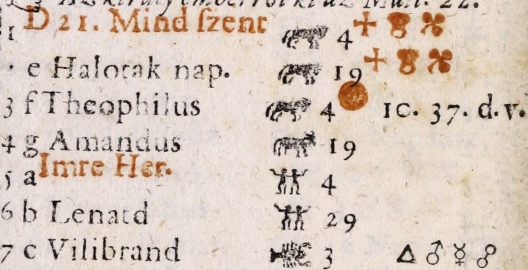 D 21. Mind szent 4
e Halotak nap. 19
3 f Theophilus 4 10. 37. d. v.
4 g Amandus 19
5 a Imre Her. 4
6 b Lenatd 29
7 c Vilibrand 3 △ ♂ ☿ ☍